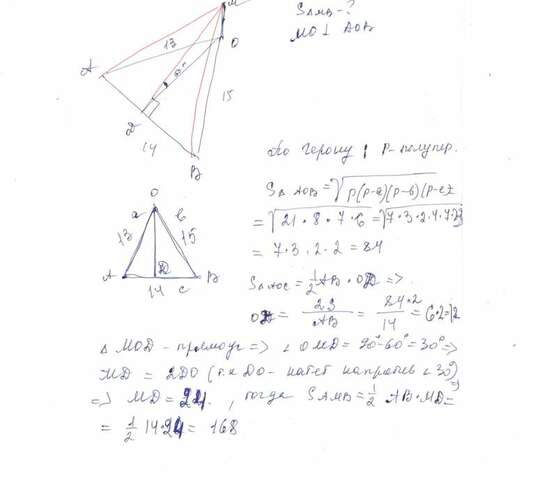 M
S△AMB - ?
MO ⊥ AOB
13
O
A
60°
15
D
14
B
По Герону, p - полупер.
S△AOB = √p(p-a)(p-b)(p-c)
= √21·8·7·6 = √7·3·2·4·7·2·3
= 7·3·2·2 = 84
O
a b
13 15
A D B
14 c
S△AOC = ½ AB·OD =>
OD = 2S/AB = 84·2/14 = 6·2=12
△ MOD - прямоуг => ∠OMD = 90°-60°=30° =>
MD = 2DO (т.к DO - катет напротив ∠30°) =>
=> MD = 24. , тогда S△MB = ½ AB·MD =
= ½ 14·24 = 168